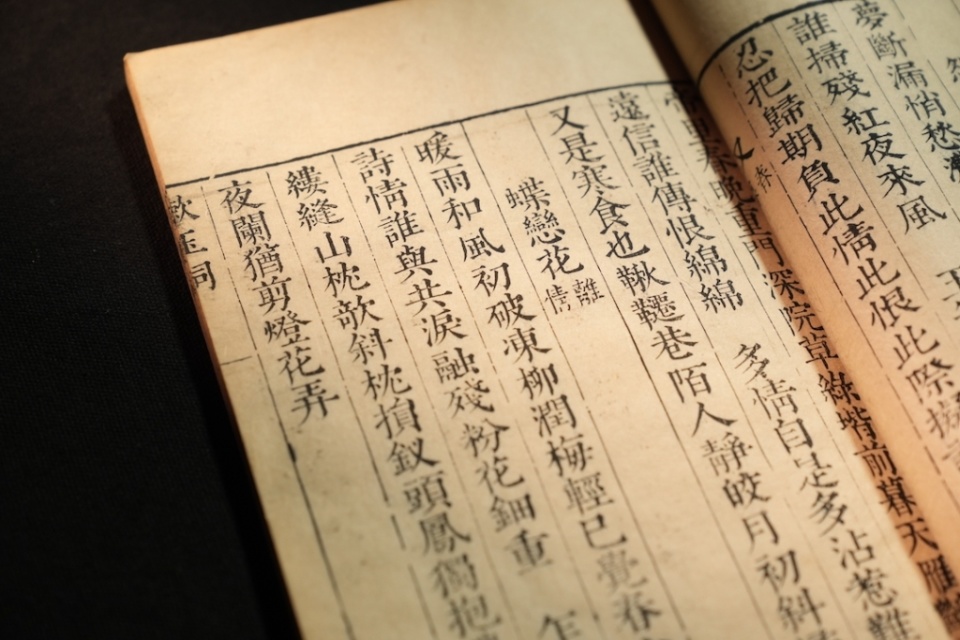 夢斷漏悄愁
誰掃殘紅夜來風
忍把歸期負此情此恨此際擬
又
春晚重門深院草綠堦前暮天雁
遠信誰傳恨綿綿 多情自是多沾惹難
又是寒食也鞦韆巷陌人靜皎月初斜
蝶戀花 離情
暖雨和風初破凍柳潤梅輕已覺春
詩情誰與共淚融殘粉花鈿重 乍
縷縫山枕欹斜枕損釵頭鳳獨抱
夜闌猶剪燈花弄
漱玉詞